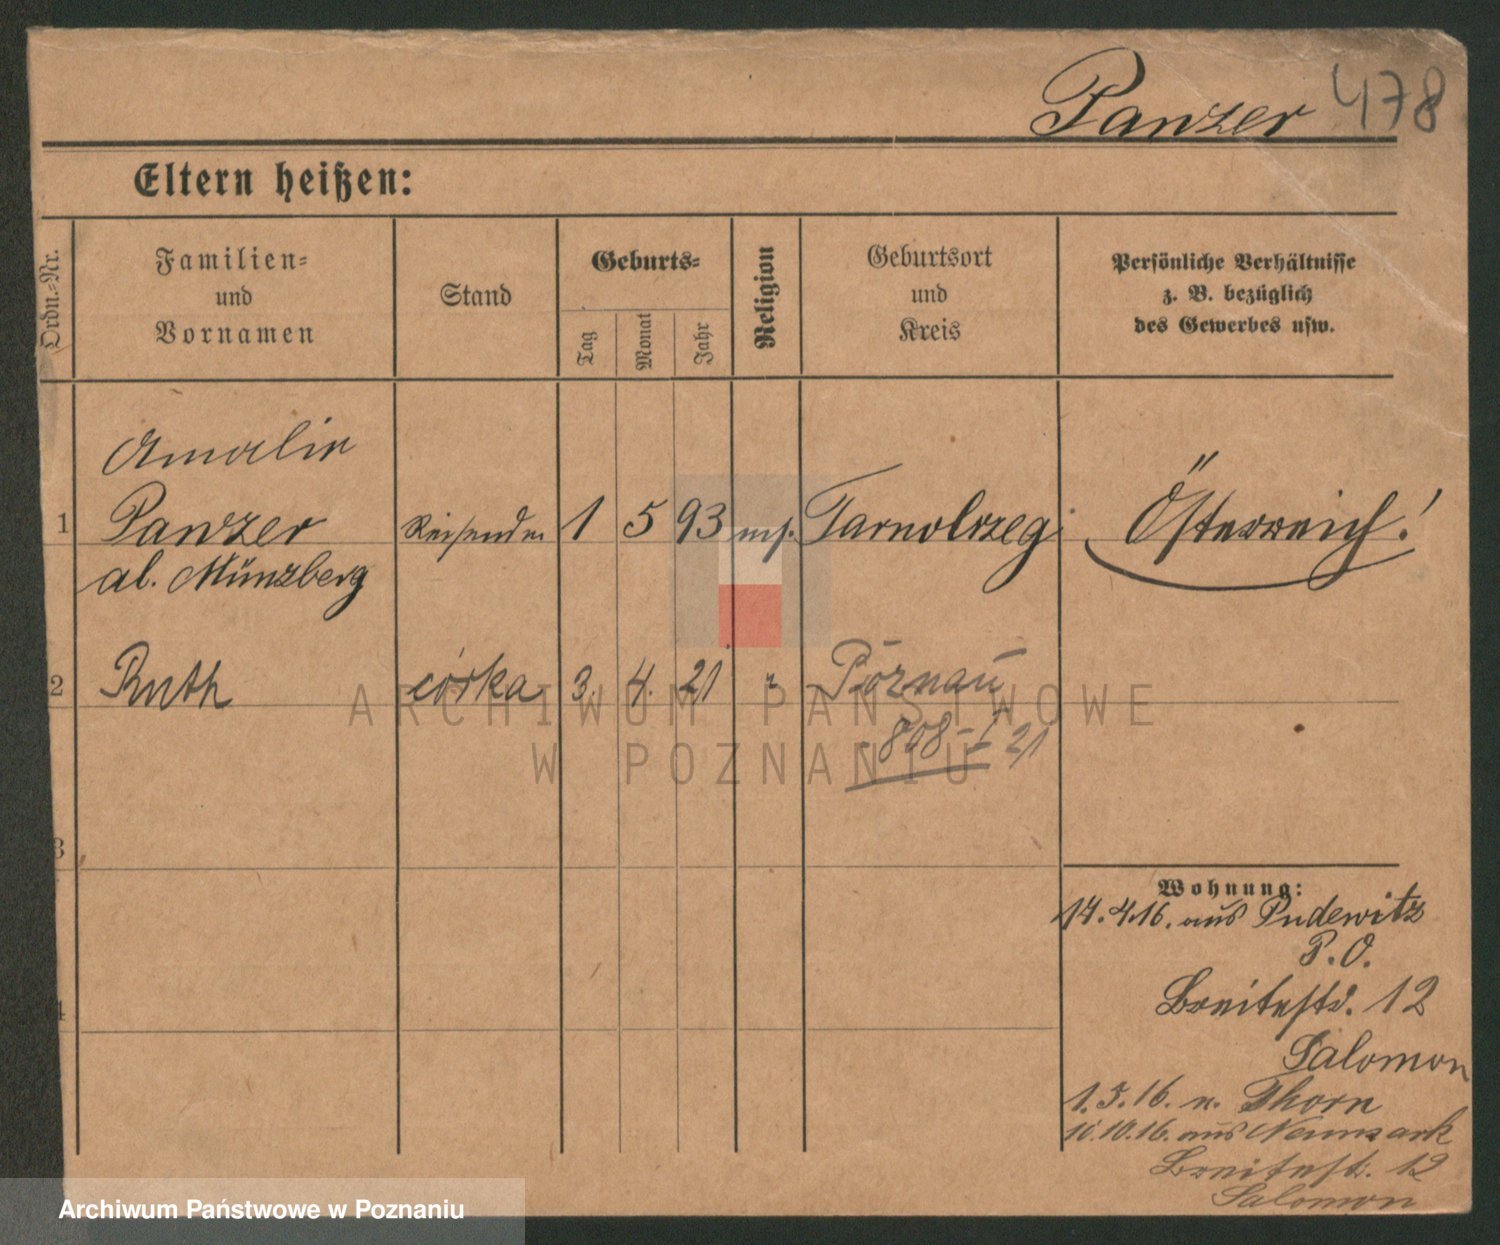 Panzer 478
Eltern heißen:
Ordn.-Nr.
Familien-
und
Vornamen
Stand
Geburts-
Tag
Monat
Jahr
Religion
Geburtsort
und
Kreis
Persönliche Verhältnisse
z. B. bezüglich
des Gewerbes usw.
Amalie
1 Panzer Reisende 1 5 93 mos. Tarnobrzeg Österreich!
al. Münzberg
2 Ruth córka 3. 4. 21 " Poznań
808-I 21
3
4
Wohnung:
14.4.16. aus Pudewitz
P.O.
Breitestr. 12
Salomon
1.5.16. n. Thorn
10.10.16. aus
Breitestr. 12
Salomon
ARCHIWUM PAŃSTWOWE
W POZNANIU
Archiwum Państwowe w Poznaniu